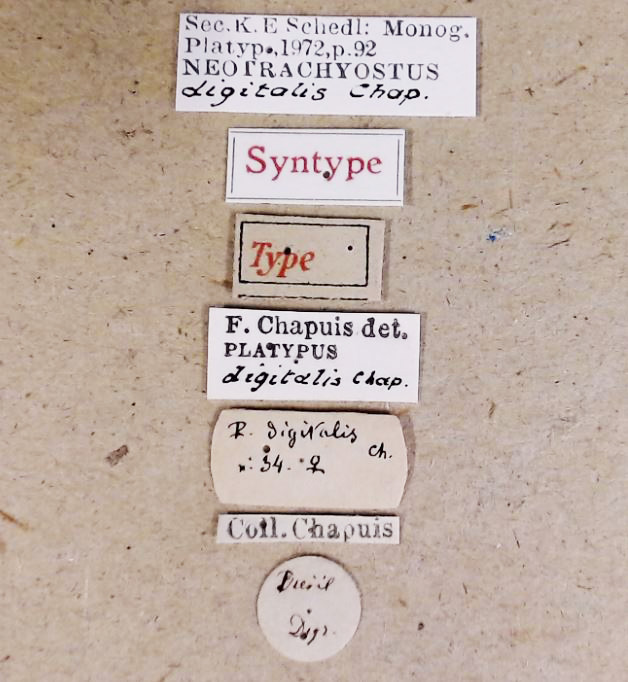 Sec. K. E Schedl: Monog.
Platyp., 1972, p. 92
NEOTRACHYOSTUS
digitalis Chap.
Syntype
Type
F. Chapuis det.
PLATYPUS
digitalis Chap.
P. digitalis
Ch.
n: 34. ♀
Coll. Chapuis